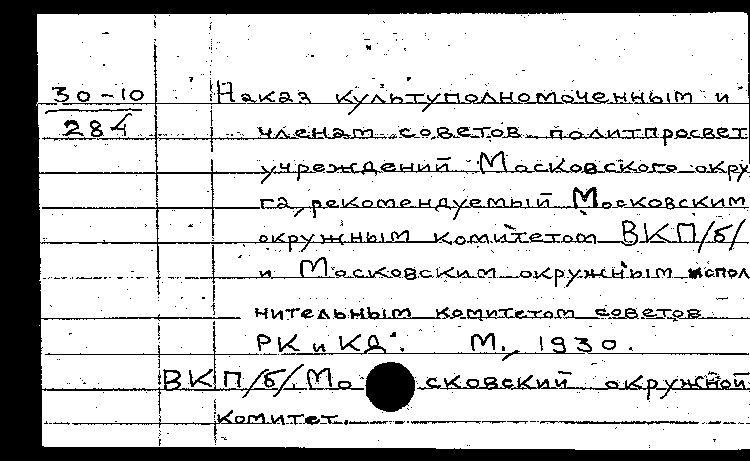 30-10
284
Наказ культуполномоченным и
членам советов политпросвет
учреждений Московского окру
га, рекомендуемый Московским
окружным комитетом ВКП/б/
и Московским окружным испол
нительным комитетом советов
РК и КД. М., 1930.
ВКП/б/. Московский окружной
комитет.